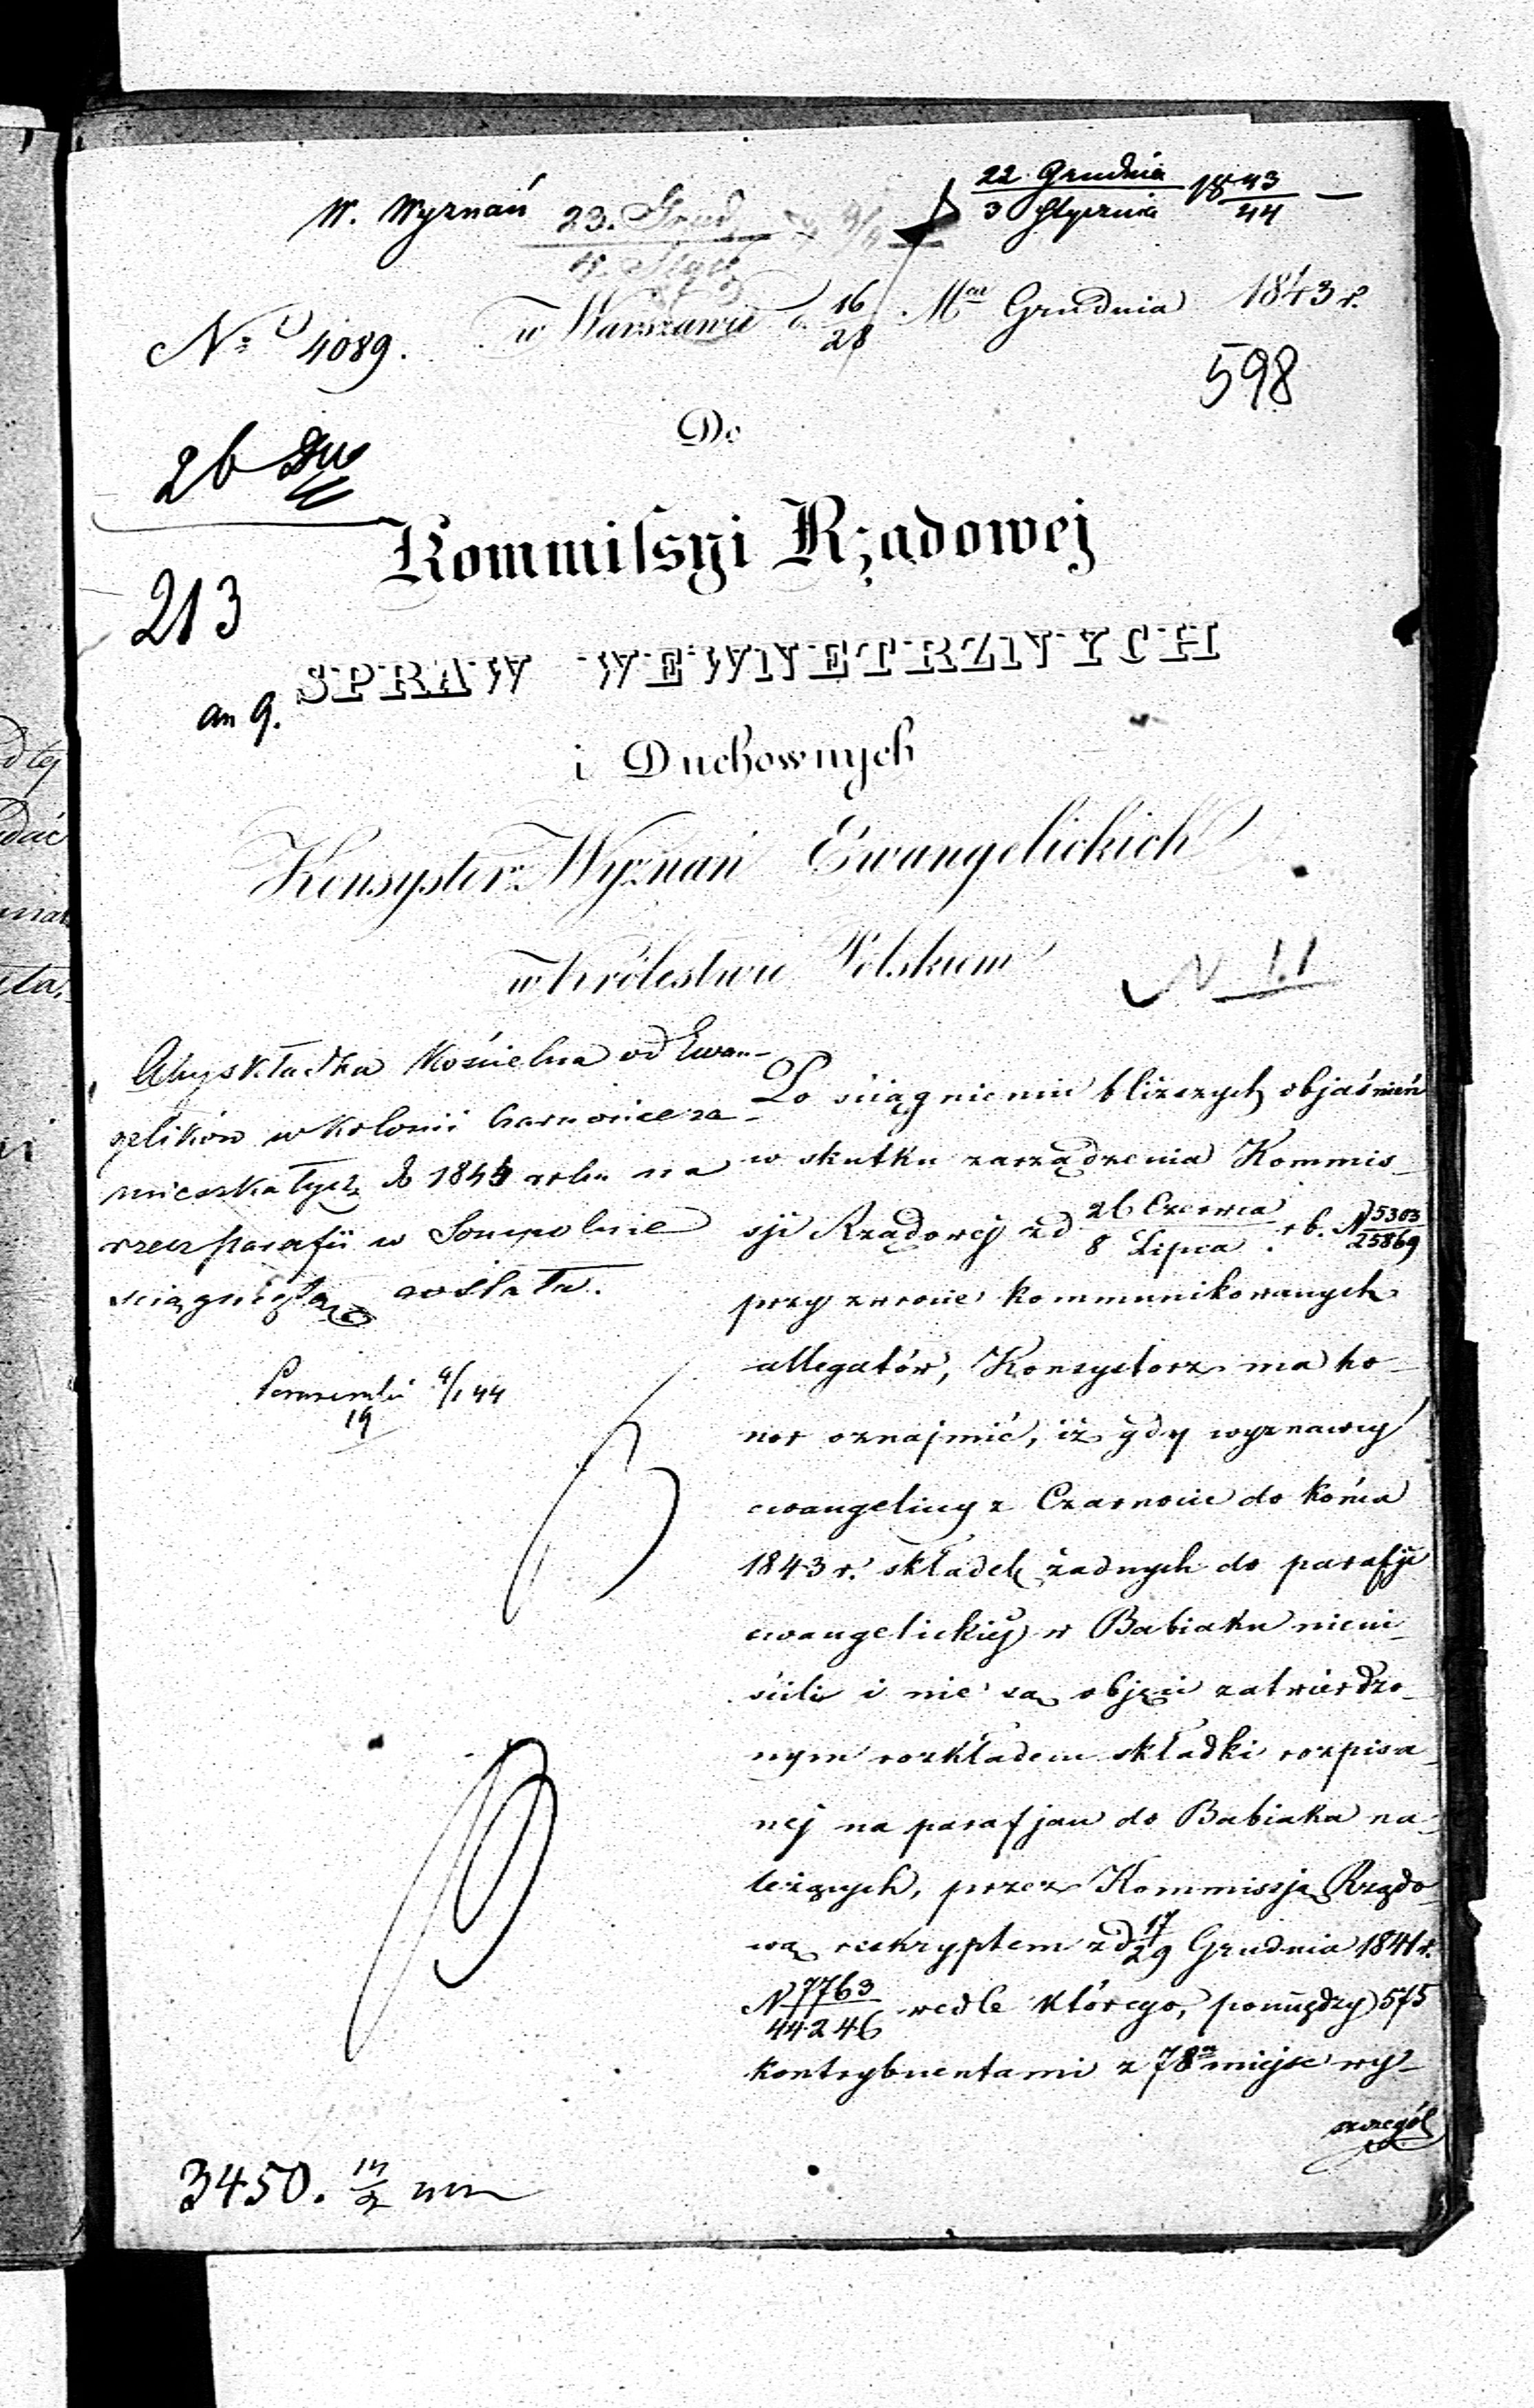 W. Wyznań
23. Grud
4. Stycz
22 Grudnia 1843
3 Stycznia 44
No 4089.
w Warszawie d. 16/28 Mca Grudnia 1843 r.
598
Do
26
213
Kommissyi Rządowej
SPRAW WEWNETRZNYCH
an 9.
i Duchownych
Konsystorz Wyznań Ewangelickich
w Królestwie Polskiem
N 11
składka Kościelna od Ewan-
gelików w Kolonii Czarnocice za-
mieszkałych do 1844 roku na
rzecz parafii w Sompolnie
sciągnięta została.
4/1 44
19
Po ściągnieniu bliższych objaśnień
w skutku zarządzenia Kommis-
syi Rządowej z d 26 Czerwca / 8 Lipca r b. N 5303/25869
przy zwrocie kommunikowanych
allegatów, Konsystorz ma ho-
nor oznajmić, iż gdy wyznawcy
ewangeliccy z Czarnocic do końca
1843 r. składek żadnych do parafji
ewangelickiej w Babiaku nieui-
ścili i nie są objęci zatwierdzo-
nym rozkładem składki rozpisa-
nej na parafjan do Babiaka na-
leżących, przez Kommissję Rządo-
wą reskryptem z d 17/29 Grudnia 1841 r.
N 7763/44246 wedle którego, pomiędzy 575
kontrybuentami z 78 miejsc wy-
szczegól
3450.